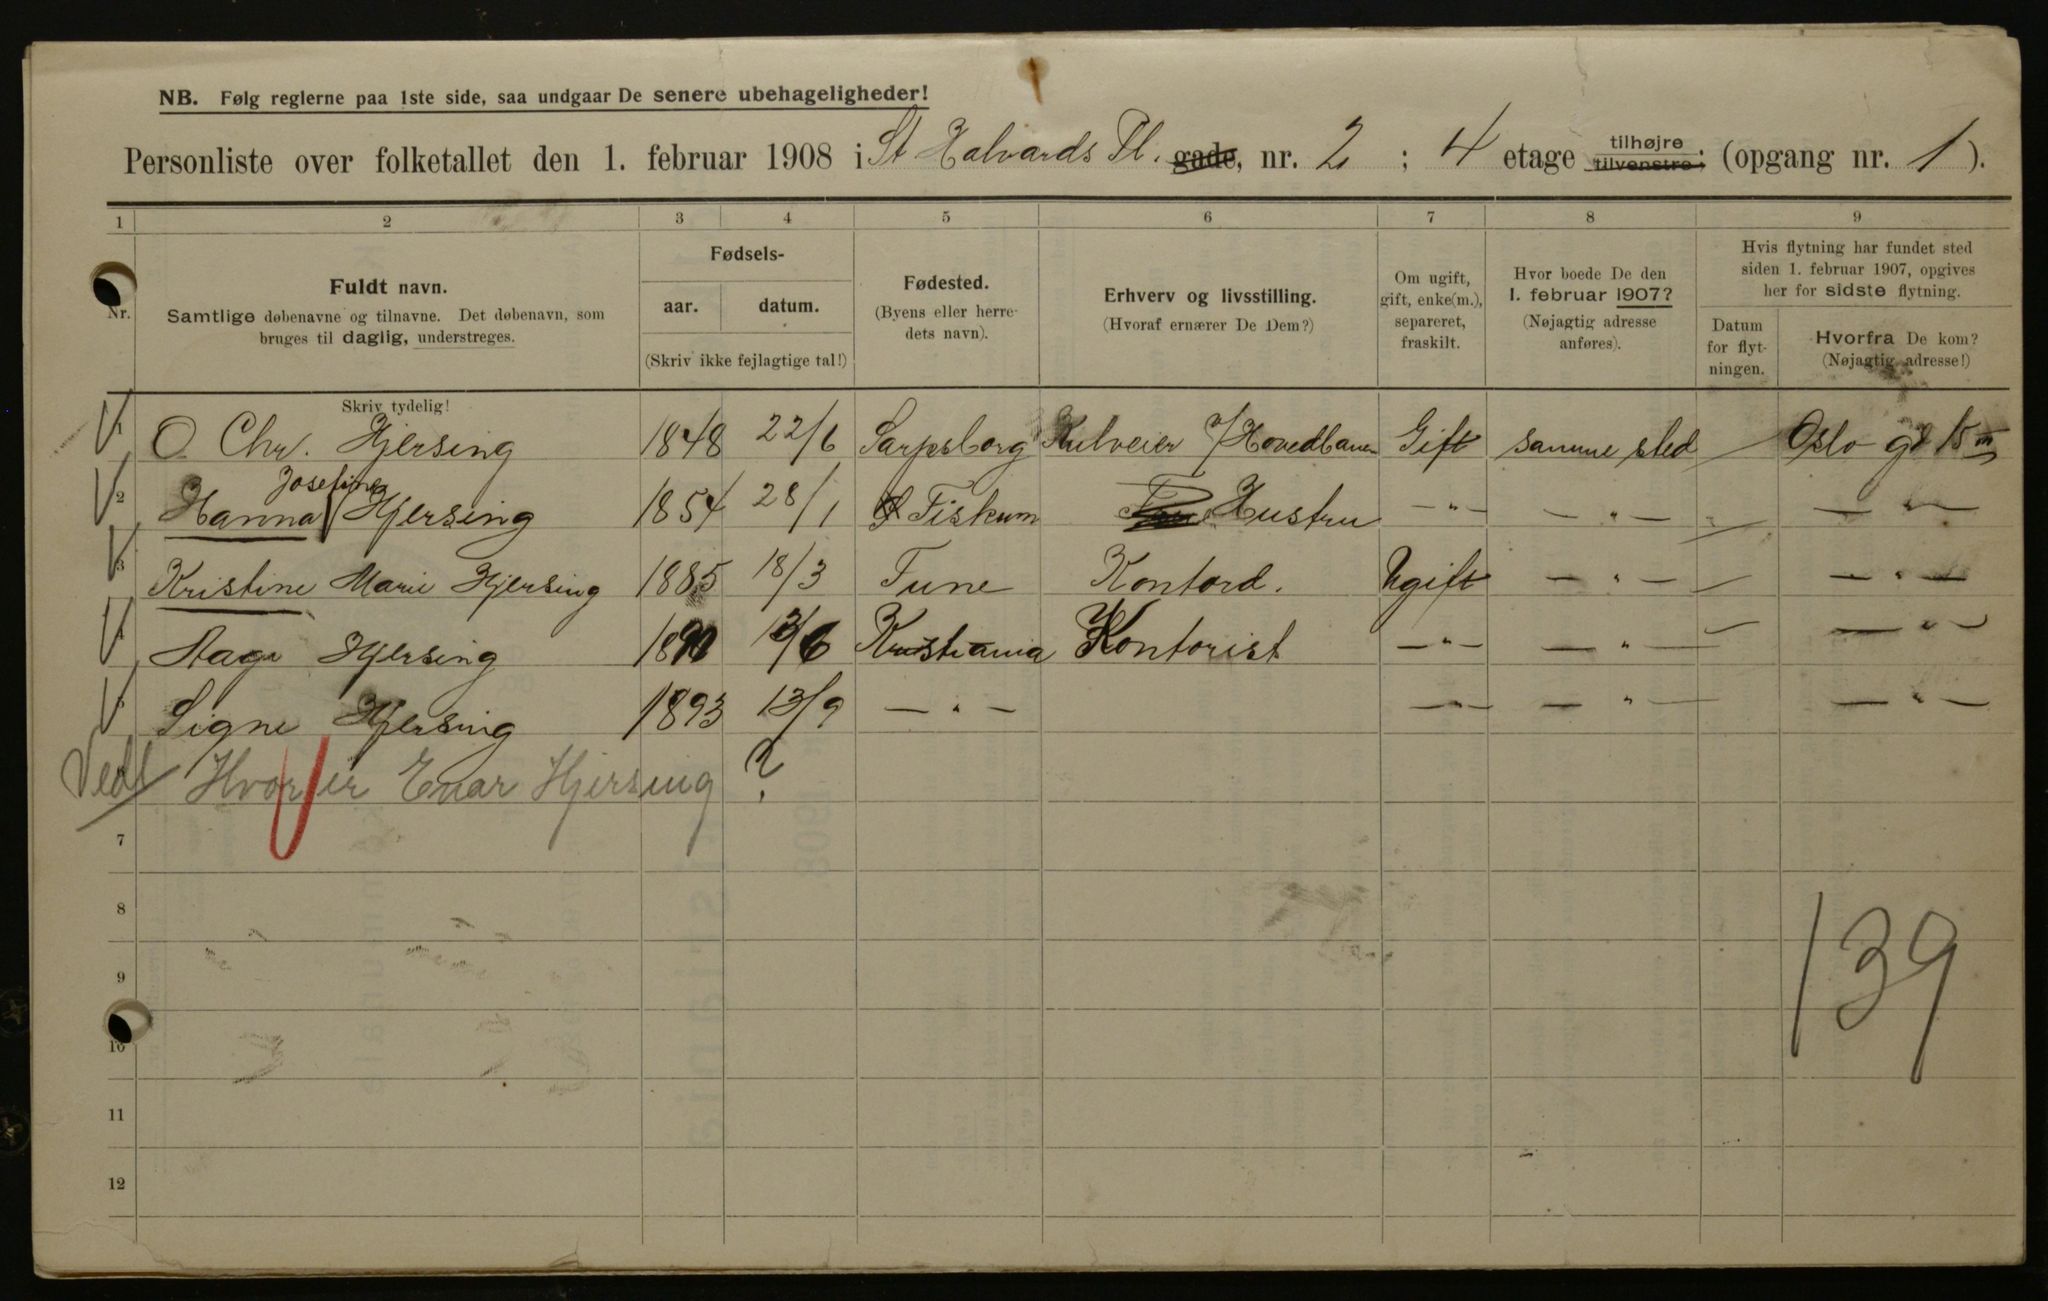 NB. Følg reglerne paa 1ste side, saa undgaar De senere ubehageligheder!
Personliste over folketallet den 1. februar 1908 i St Halvards Pl. gade, nr. 2 ; 4 etage tilhøjre tilvenstre; (opgang nr. 1).
1 2 3 4 5 6 7 8 9
Nr.
Fuldt navn.
Samtlige døbenavne og tilnavne. Det døbenavn, som
bruges til daglig, understreges.
Skriv tydelig!
Fødsels-
aar. datum.
(Skriv ikke fejlagtige tal!)
Fødested.
(Byens eller herre-
dets navn).
Erhverv og livsstilling.
(Hvoraf ernærer De Dem?)
Om ugift,
gift, enke(m.),
separeret,
fraskilt.
Hvor boede De den
1. februar 1907?
(Nøjagtig adresse
anføres).
Hvis flytning har fundet sted
siden 1. februar 1907, opgives
her for sidste flytning.
Datum
for flyt-
ningen.
Hvorfra De kom?
(Nøjagtig adresse!)
1 O Chr. Hjersing 1848 22/6 Sarpsborg Hovedbanen Gift samme sted Oslo gd 15
2 Hanna Josefine Hjersing 1854 28/1 Fiskum Hustru — " — — " — — " —
3 Kristine Marie Hjersing 1885 18/3 Tune Kontord. Ugift — " — — " —
4 Aage Hjersing Kristiania Kontorist — " — — " — — " —
5 Signe Hjersing 1893 13/9 — " — — " — — " — — " —
Ved Hvor er Enar Hjersing ?
7
8
9
10
11
12
139